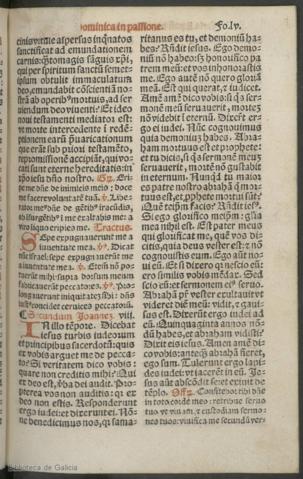 Dominica in passione. Fo.lv.
cinis vitule aspersus inq̃natos
sanctificat ad emundationem
carnis: q̃tomagis sãguis xp̃i,
qui per spiritum sanctũ semet
ipsum obtulit immaculatum
deo, emundabit cõsciẽtiã no
strã ab operib9 mortuis, ad ser
uiendum deo viuenti: Et ideo
noui testamenti mediator est:
vt morte intercedente ĩ redẽ-
ptionem earũ p̃uaricationum
que erãt sub priori testamẽto,
repromissionẽ accipiãt, qui vo-
cati sunt eterne hereditatis: in
xp̃o iesu dño nostro.
Tractus.
Sepe expugnauerunt me a
iuuentute mea. ℣. Dicat
nũc israel: sepe expugnauerũt me
a iuuentute mea. ℣. Etenĩ nõ po-
tuerũt mihi: supra dorsum meum
fabricauerũt peccatores. ℣. Pro-
longauerunt iniquitatẽ sibi: dñs
iustus concidet ceruices peccatorũ.
Secundum Joannez. viij.
In illo tẽpore. Dicebat
Iesus turbis iudeorum
et principibus sacerdotũ: quis
ex vobis arguet me de pecca-
to? Si veritatem dico vobis:
quare non creditis mihi? Qui
ex deo est, v̾ba dei audit. Pro-
pterea vos non auditis: q̃ ex
deo non estis. Responderunt
ergo iudei: et dixerunt ei. Nõ-
ne benedicimus nos, q̃ sama-
ritanus es tu, et demoniũ ha-
bes? Rñdit iesus. Ego demo-
niũ nõ habeo: s3 honorifico pa
trem meũ: et vos inhonorastis
me. Ego autẽ nõ quero gloriã
meã. Est qui querat, 7 iudicet.
Amẽ amẽ dico vobis: si q̃s ser
monẽ meũ seruauerit, mortez
nõ videbit ĩ eternũ. Dixerũt er-
go ei iudei. Nũc cognouimus
quia demoniuz habes. Abra-
am mortuus est et prophete:
et tu dicis, si q̃s sermonẽ meuz
seruauerit, mortẽ nõ gustabit
in eternum. Nunq̃d tu maior es
patre nostro abrahã q̃ mor-
tuus est, et pphete mortui sũt?
Quẽ teip̃m facis? Rñdit iesus.
Si ego glorifico meip̃m: gl̃ia
mea nihil est. Est pater meus
qui glorificat me, quẽ vos di-
citis, quia deus vester est: 7 nõ
cognouistis eum. Ego aũt no-
ui eũ. Et si dixero q̃ nescio eũ:
ero similis vobis mẽdax. Sed
scio eũ: et sermonem ei9 seruo.
Abrahã p̃r vester exultauit vt
videret diẽ meũ: vidit, 7 gaui-
sus est. Dixerũt ergo iudei ad
eũ. Quinquaginta annos nõ-
dũ habes, et abraham vidisti?
Dixit eis iesus. Amen amẽ di-
co vobis: anteq̃ʒ abrahã fieret,
ego sum. Tulerunt ergo lapi-
des iudei: vt iacerẽt in eũ. Je-
sus aũt abscõdit se: et exiuit de
tẽplo. Offer. Confitebor tibi dñe
in toto corde meo: retribue seruo
tuo: viuã, 7 custodiam sermo-
nes tuos: viuifica me secundũ ver-
Biblioteca de Galicia